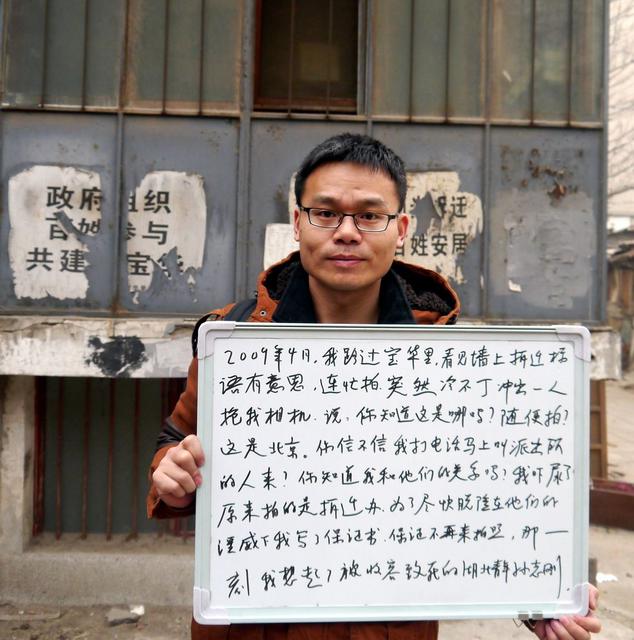 政府 组织
百姓参与
共建 宝
迁
百姓安居
2009年4月,我路过宝华里,看见墙上拆迁标
语有意思,连忙拍.突然冷不丁冲出一人
抢我相机.说,你知道这是哪吗?随便拍?
这是北京。你信不信我打电话马上叫派出所
的人来?你知道我和他们的关系吗?我吓尿了
原来拍的是拆迁办.为了尽快脱离在他们的
淫威下我写了保证书.保证不再来拍照,那一
刻我想起了被收容致死的湖北青年孙志刚